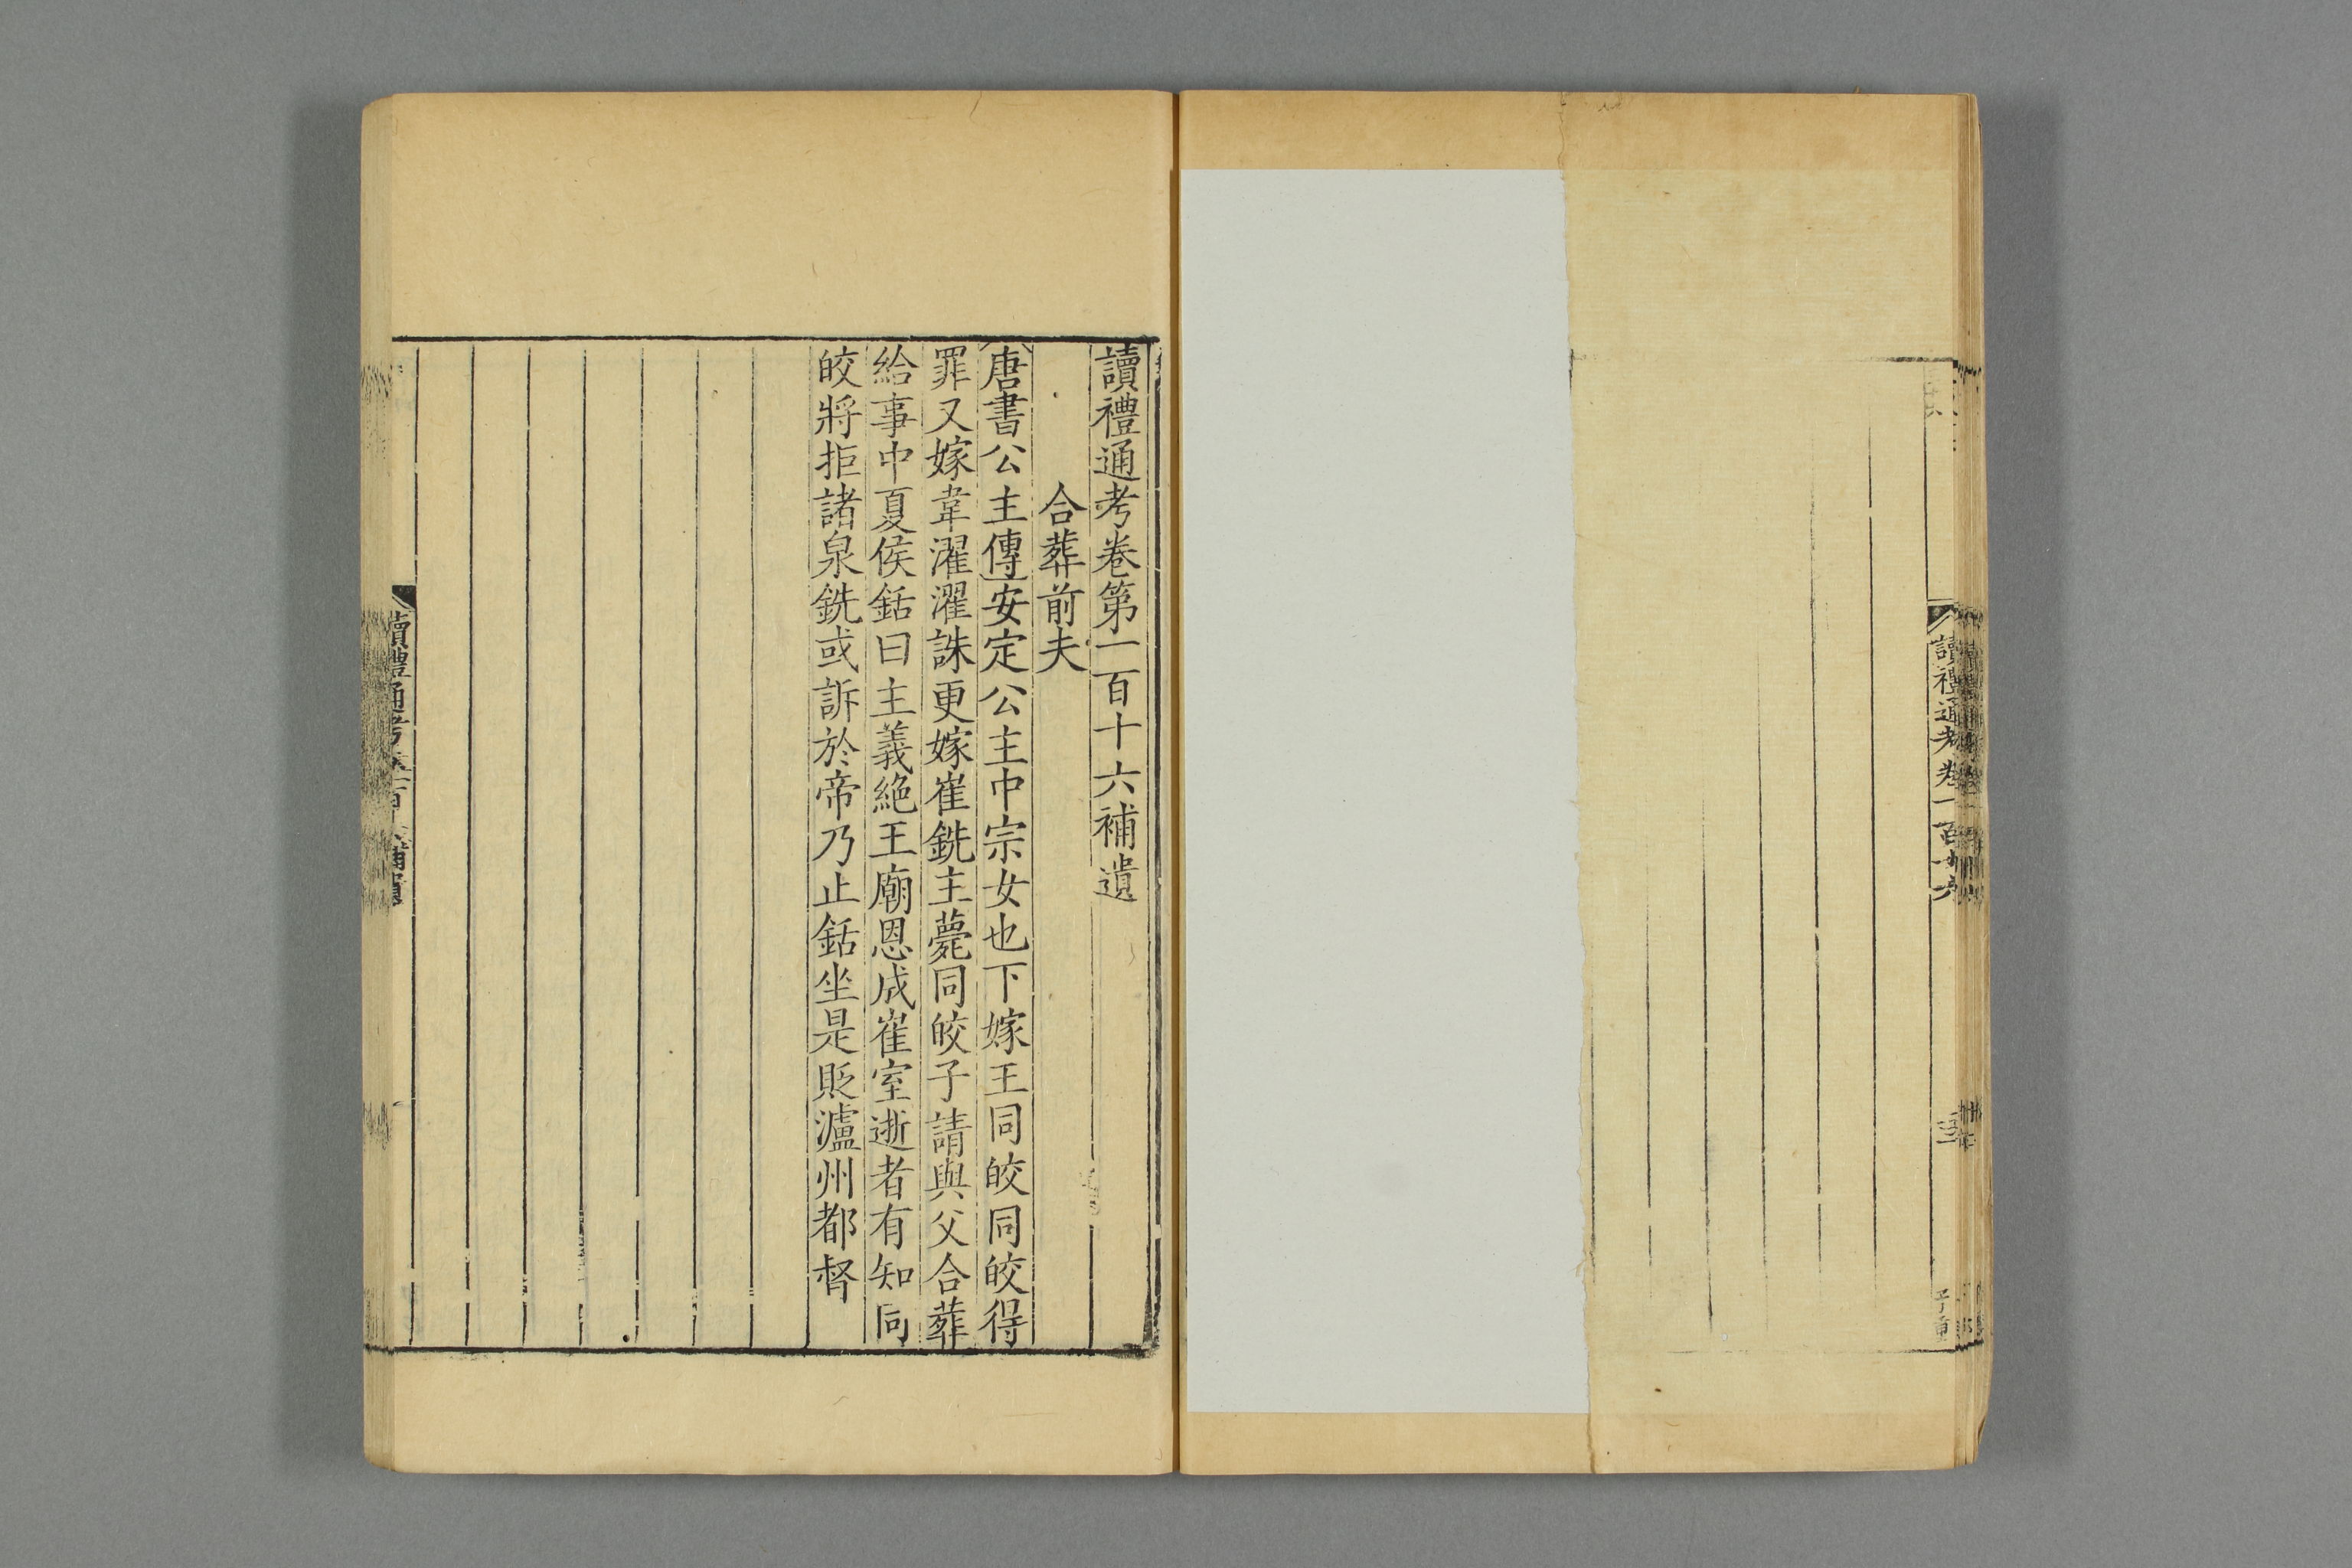 讀禮通考卷一百十六
讀禮通考卷第一百十六補遺
合葬前夫
唐書公主傳安定公主中宗女也下嫁王同皎同皎得
罪又嫁韋濯濯誅更嫁崔銑主薨同皎子請與父合葬
給事中夏侯銛曰主義絶王廟恩成崔室逝者有知同
皎將拒諸泉銑或訴於帝乃止銛坐是貶瀘州都督